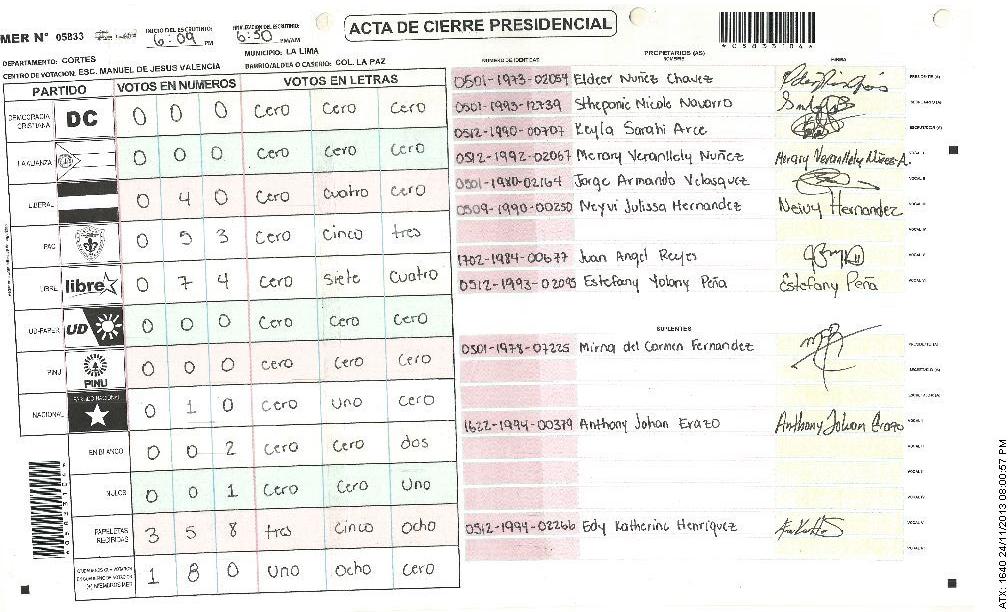 ACTA DE CIERRE PRESIDENCIAL
MER N° 05833
INICIO DEL ESCRUTINIO: 6:09 PM
FINALIZACION DEL ESCRUTINIO: 6:50 PM/AM
DEPARTAMENTO: CORTES
MUNICIPIO: LA LIMA
CENTRO DE VOTACION: ESC. MANUEL DE JESUS VALENCIA
BARRIO/ALDEA O CASERIO: COL. LA PAZ
PARTIDO VOTOS EN NUMEROS VOTOS EN LETRAS
DEMOCRACIA CRISTIANA DC 0 0 0 Cero Cero Cero
LA ALIANZA 0 0 0 Cero Cero Cero
LIBERAL 0 4 0 Cero cuatro cero
PAC 0 5 3 Cero Cinco tres
LIBRE libre 0 7 4 Cero Siete Cuatro
UD-FAPER UD 0 0 0 Cero Cero Cero
PINU PINU 0 0 0 Cero Cero Cero
NACIONAL PARTIDO NACIONAL 0 1 0 Cero Uno Cero
EN BLANCO 0 0 2 Cero Cero dos
NULOS 0 0 1 Cero Cero Uno
PAPELETAS RECIBIDAS 3 5 8 tres Cinco Ocho
1 8 0 Uno Ocho Cero
PROPIETARIOS (AS)
NUMERO DE IDENTIDAD NOMBRE FIRMA
0501-1973-02059 Eldeer Nuñez Chavez PRESIDENTE (A)
0501-1993-12739 Sthepanie Nicole Navarro SECRETARIO (A)
0512-1990-00707 Keyla Sarahi Arce ESCRUTADOR (A)
0512-1992-02067 Merary Veranllely Nuñez Merary Veranllely Núñez A. VOCAL I
0501-1980-02164 Jorge Armando Velasquez VOCAL II
0509-1990-00250 Neyvi Julissa Hernandez Neivy Hernandez VOCAL III
VOCAL IV
1702-1984-00677 Juan Angel Reyes VOCAL V
0512-1993-02095 Estefany Yolany Peña Estefany Peña VOCAL VI
SUPLENTES
0501-1978-07225 Mirna del Carmen Fernandez PRESIDENTE (A)
SECRETARIO (A)
ESCRUTADOR (A)
1622-1994-00379 Anthony Johan Erazo Anthony Johan Erazo VOCAL I
VOCAL II
VOCAL III
VOCAL IV
0512-1994-02266 Edy Katherine Henriquez VOCAL V
VOCAL VI
ATX: 1640 24/11/2013 08:00:57 PM